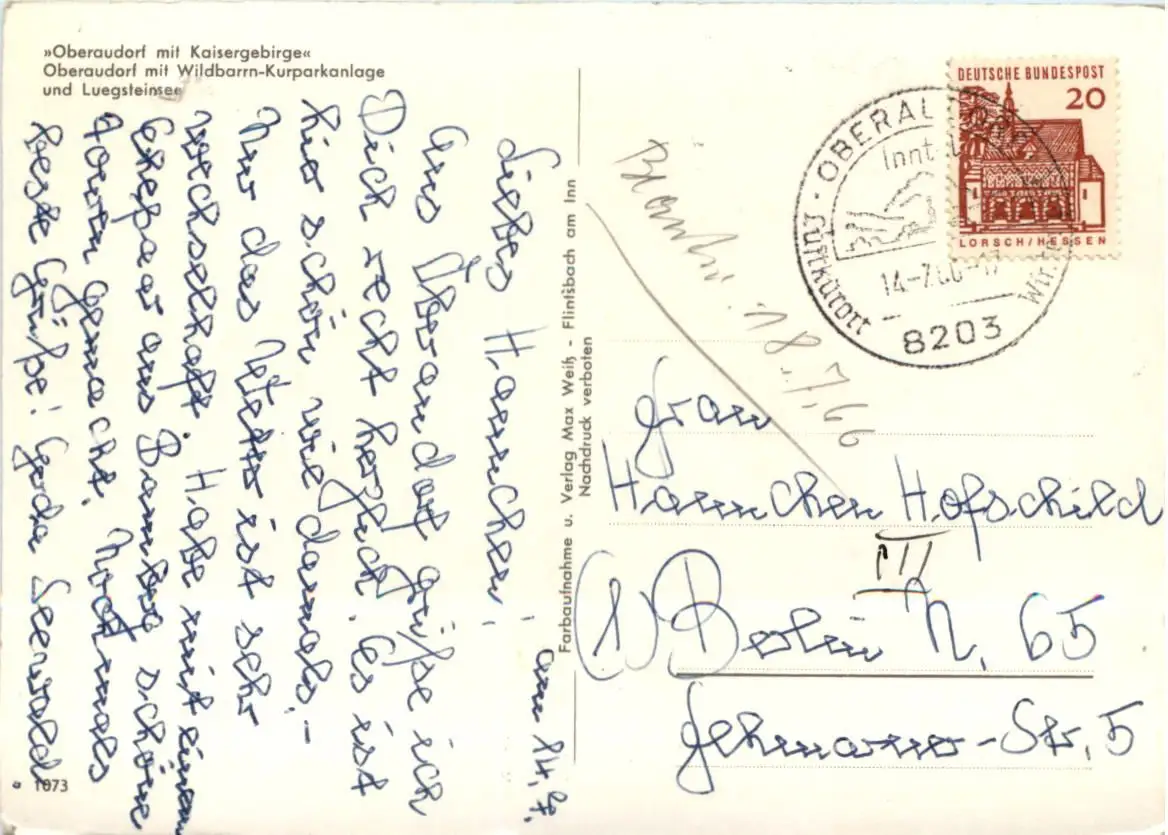 »Oberaudorf mit Kaisergebirge«
Oberaudorf mit Wildbarrn-Kurparkanlage
und Luegsteinsee
am 14. 7.
Liebes Hannchen!
Aus Oberaudorf grüße ich
Dich recht herzlich. Es ist
hier schön wie damals. –
Nur das Wetter ist sehr
wechselhaft. Habe mit einem
Ehepaar aus Bamberg schöne
Touren gemacht. Nochmals
beste Grüße! Gerda Seewald
1073
Farbaufnahme u. Verlag Max Weiß - Flintsbach am Inn
Nachdruck verboten
DEUTSCHE BUNDESPOST
20
LORSCH/HESSEN
Luftkurort
8203
18.7.66
Frau
Hannchen Hofschild
III
(1) Berlin N. 65
Str. 5